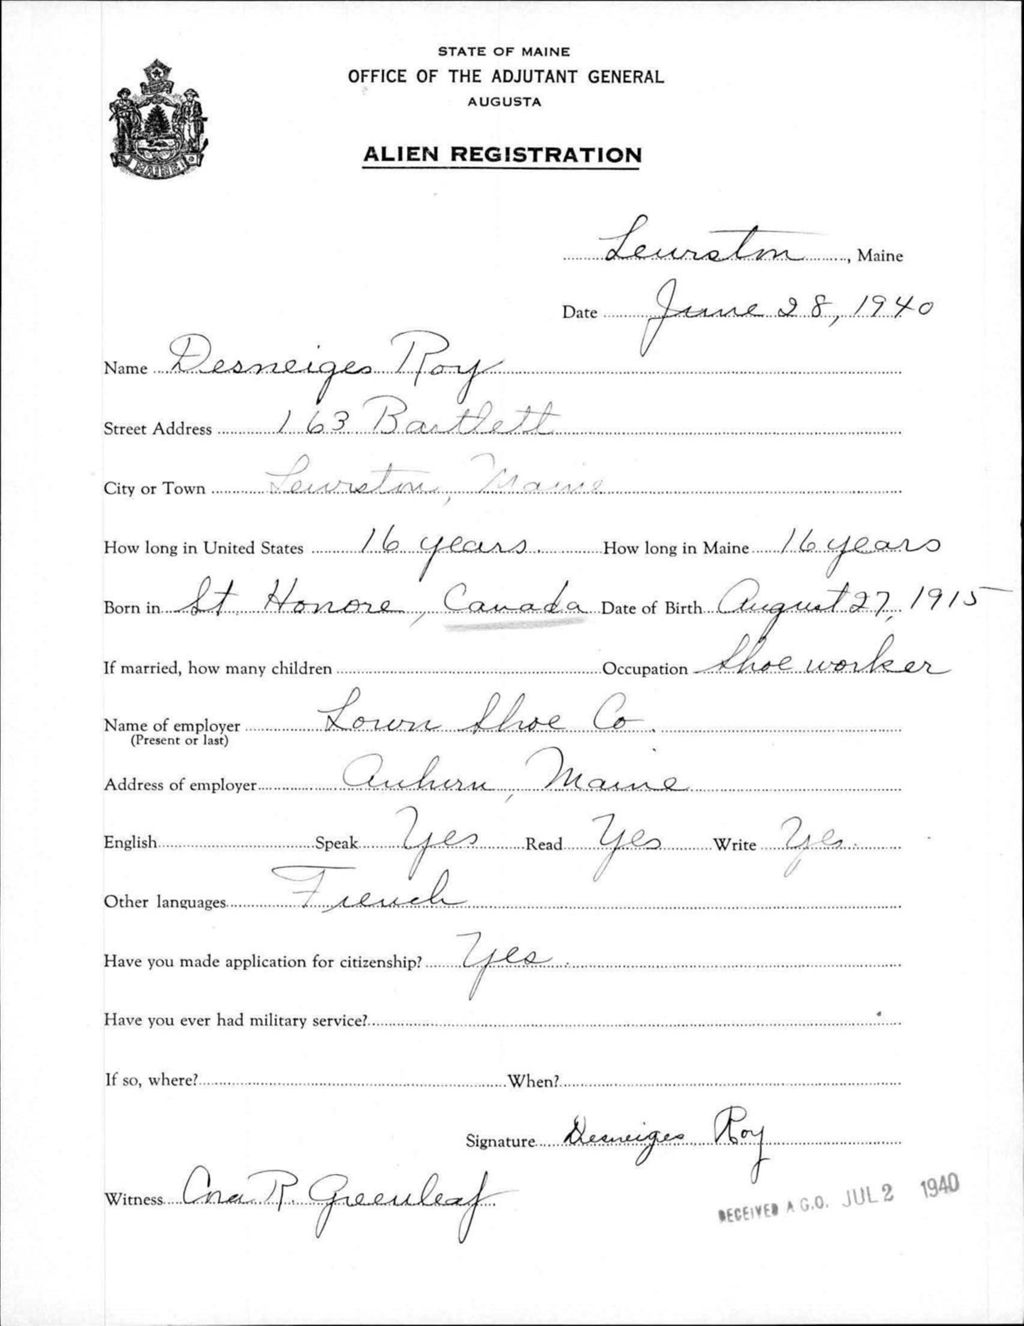 STATE OF MAINE
OFFICE OF THE ADJUTANT GENERAL
AUGUSTA
ALIEN REGISTRATION
MAINE
Lewiston, Maine
Date June 28, 1940
Name Desneiges Roy
Street Address 163 Bartlett
City or Town Lewiston, Maine
How long in United States 16 years How long in Maine 16 years
Born in St Honore, Canada Date of Birth August 27, 1915
If married, how many children Occupation Shoe worker
Name of employer Lown Shoe Co.
(Present or last)
Address of employer Auburn, Maine
English Speak Yes Read Yes Write Yes.
Other languages French
Have you made application for citizenship? Yes.
Have you ever had military service?
If so, where? When?
Signature Desneiges Roy
Witness R. Greenleaf
RECEIVED A.G.O. JUL 2 1940